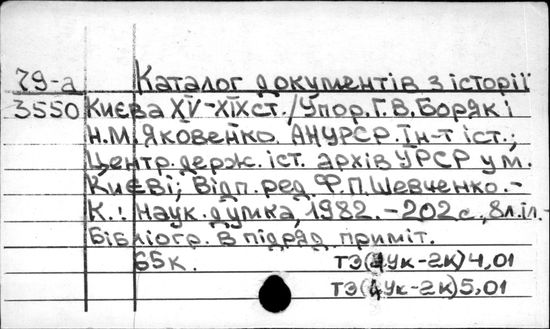 79-а Каталог документів з історії
3550 Києва XV-XIXст./Упор.Г.В.Боряк і
Н.М.Яковенко. АНУРСР. Ін-т іст.;
Центр.держ.іст. архів УРСР у м.
Києві; Відп.ред. Ф.П.Шевченко.-
К.: Наук.думка, 1982.-202с., 8л.іл.-
Бібліогр. в підряд. приміт.
65к. ТЭ(4Ук-2К)4,01
ТЭ(4Ук-2К)5,01